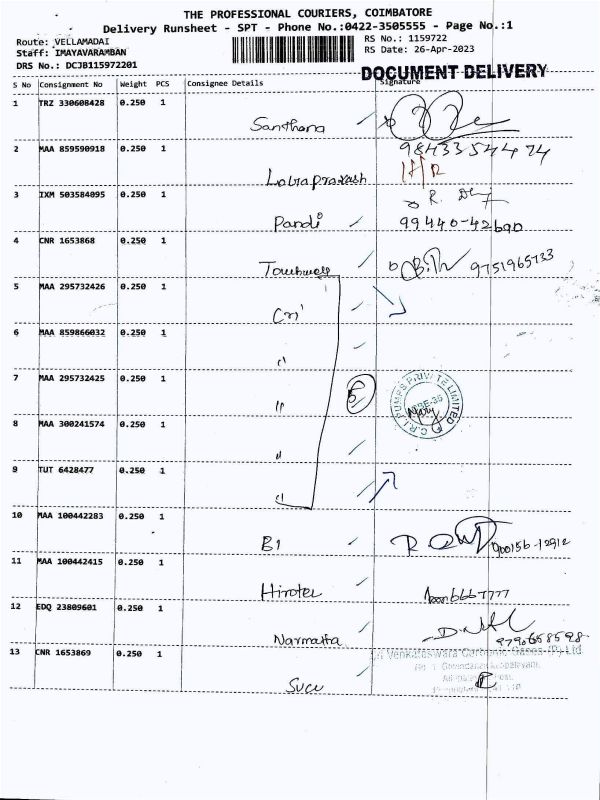 THE PROFESSIONAL COURIERS, COIMBATORE
Delivery Runsheet - SPT - Phone No.:0422-3505555 - Page No.:1
Route: VELLAMADAI
RS No.: 1159722
Staff: IMAYAVARAMBAN
RS Date: 26-Apr-2023
DRS No.: DCJB115972201
DOCUMENT DELIVERY
S No Consignment No Weight PCS Consignee Details Signature
1 TRZ 330608428 0.250 1 Santhana
98433 54474
2 MAA 859590918 0.250 1
3 IXM 503584095 0.250 1 Pandi R.
99440-42690
4 CNR 1653868 0.250 1 9751965733
5 MAA 295732426 0.250 1 Cri
6 MAA 859866032 0.250 1 "
7 MAA 295732425 0.250 1 "
5
C.R.I. PUMPS PRIVATE LIMITED
8 MAA 300241574 0.250 1 "
9 TUT 6428477 0.250 1 "
10 MAA 100442283 0.250 1
11 MAA 100442415 0.250 1
12 EDQ 23809601 0.250 1 Narmatha
9790658598
13 CNR 1653869 0.250 1
Sri Venkateswara Carbonic Gases (P) Ltd